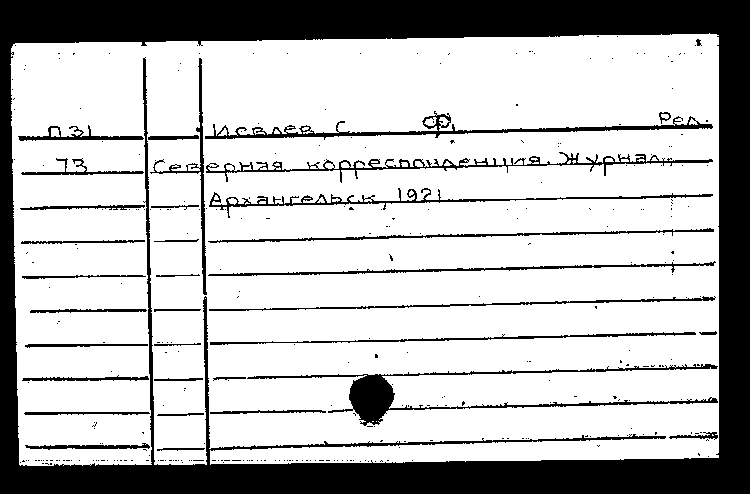 П31 Исвлев, С. Ф. Ред.
73 Северная корреспонденция. Журнал.
Архангельск, 1921